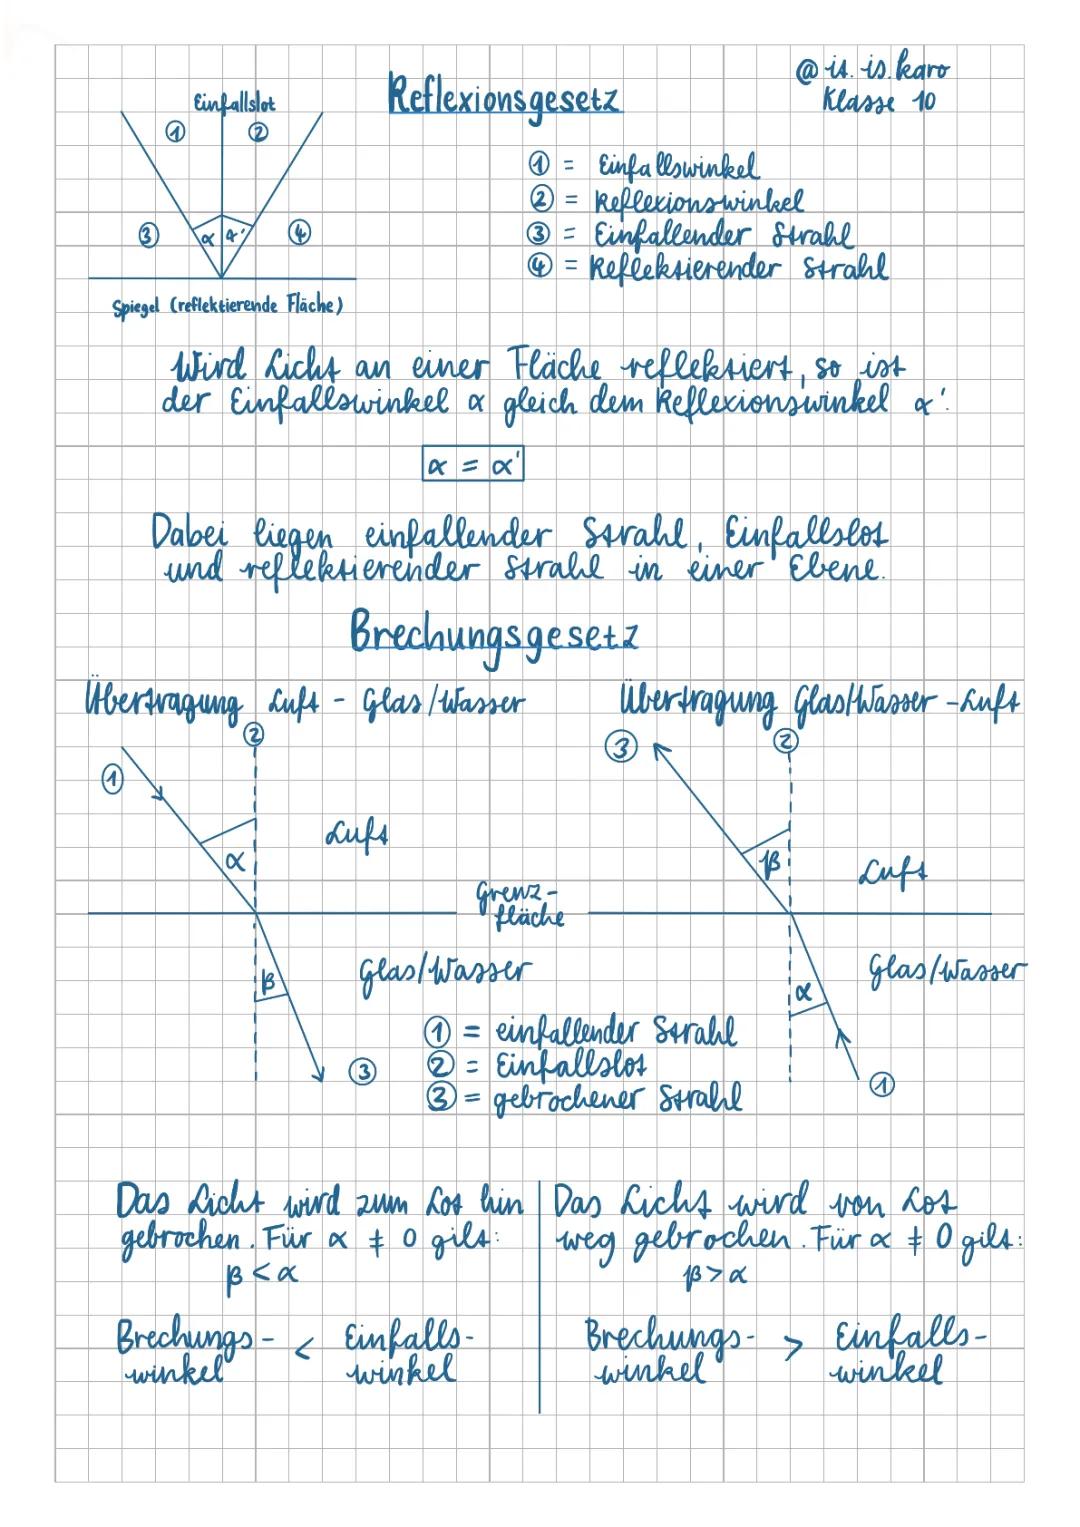 @ it.is.karo
Klasse 10
Reflexionsgesetz
Einfallslot
① ②
③ α α' ④
Spiegel (reflektierende Fläche)
① = Einfallswinkel
② = Reflexionswinkel
③ = Einfallender Strahl
④ = Reflektierender Strahl
Wird Licht an einer Fläche reflektiert, so ist
der Einfallswinkel α gleich dem Reflexionswinkel α'.
α = α'
Dabei liegen einfallender Strahl, Einfallslot
und reflektierender Strahl in einer Ebene.
Brechungsgesetz
Übertragung Luft - Glas/Wasser
②
①
α
Luft
Grenz-
fläche
β
Glas/Wasser
③
Übertragung Glas/Wasser - Luft
③ ②
β
Luft
Glas/Wasser
α
①
① = einfallender Strahl
② = Einfallslot
③ = gebrochener Strahl
Das Licht wird zum Lot hin
gebrochen. Für α ≠ 0 gilt:
β < α
Brechungs- < Einfalls-
winkel winkel
Das Licht wird von Lot
weg gebrochen. Für α ≠ 0 gilt:
β > α
Brechungs- > Einfalls-
winkel winkel